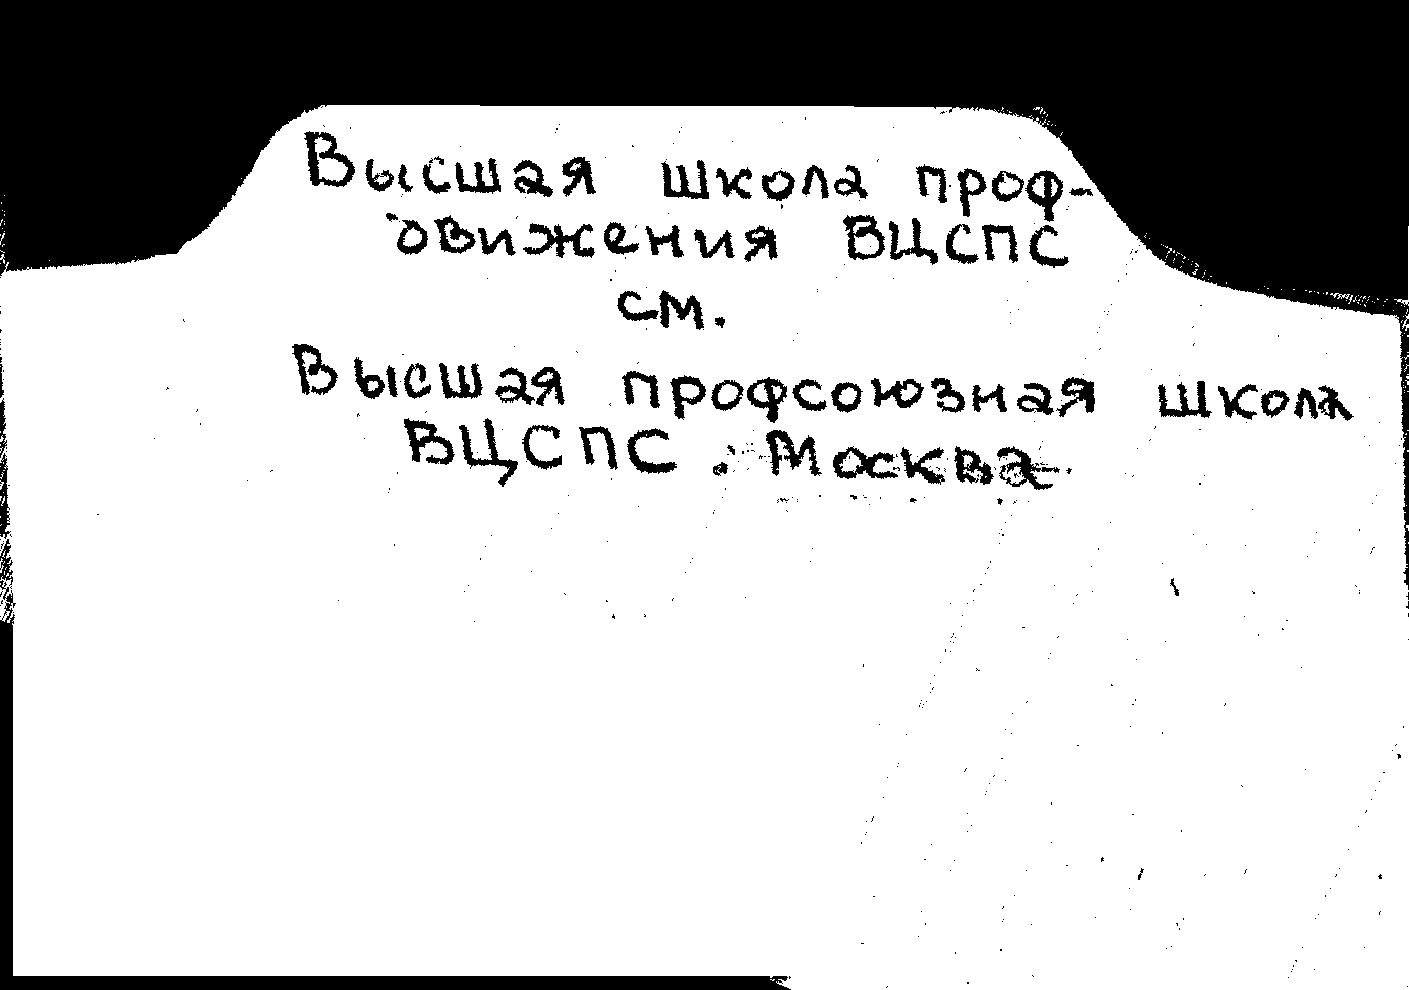 Высшая школа проф-
движения ВЦСПС
см.
Высшая профсоюзная школа
ВЦСПС. Москва